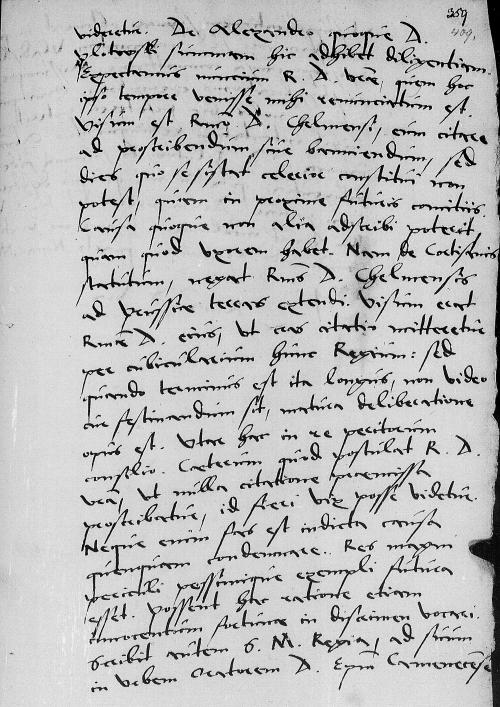 359
409.
videatur. De Alexandro quoque D.
summam hic adhibet diligentiam.
Expectamus nuncium R. D. Vrae, quem hoc
ipso tempore venisse mihi renunciatum est.
Visum est Rmo D. Chelmensi, eum citare
ad proscribendum sive banniendum, sed
dies quo se sistat celerior constitui non
potest, quam in proxime futuris comitiis.
Causa quoque non alia adscribi poterit
quam quod uxorem habet. Nam de Cortisanis
statutum, negat Rmus D. Chelmensis
ad Prussiae terras extendi. Visum erat
Rmae D. eius, ut cras citatio mitteretur
per cubicularium hunc Regium: sed
quando terminus est ita longus, non video
cur festinandum sit, matura deliberatione
opus est. Utar hac in re peritorum
consilio. Caeterum quod postulat R. D.
Vra, ut nulla citatione praemissa
proscribatur, id fieri vix posse videtur.
Neque enim fas est indicta causa
quenquam condemnare. Res magni
periculi pessimique exempli futura
esset. Possent hac ratione etiam
innocentum fortunae in discrimen vocari.
Scribit autem S. M. Regia, ad suum
in urbem Oratorem D. Epum Camenecensem